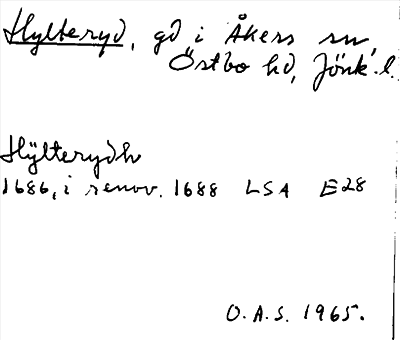 Hylteryd, gd i Åkers sn,
Östbo hd, Jönk. l.
Hÿlterydh
1686, i renov. 1688 LSA E28
O.A.S. 1965.